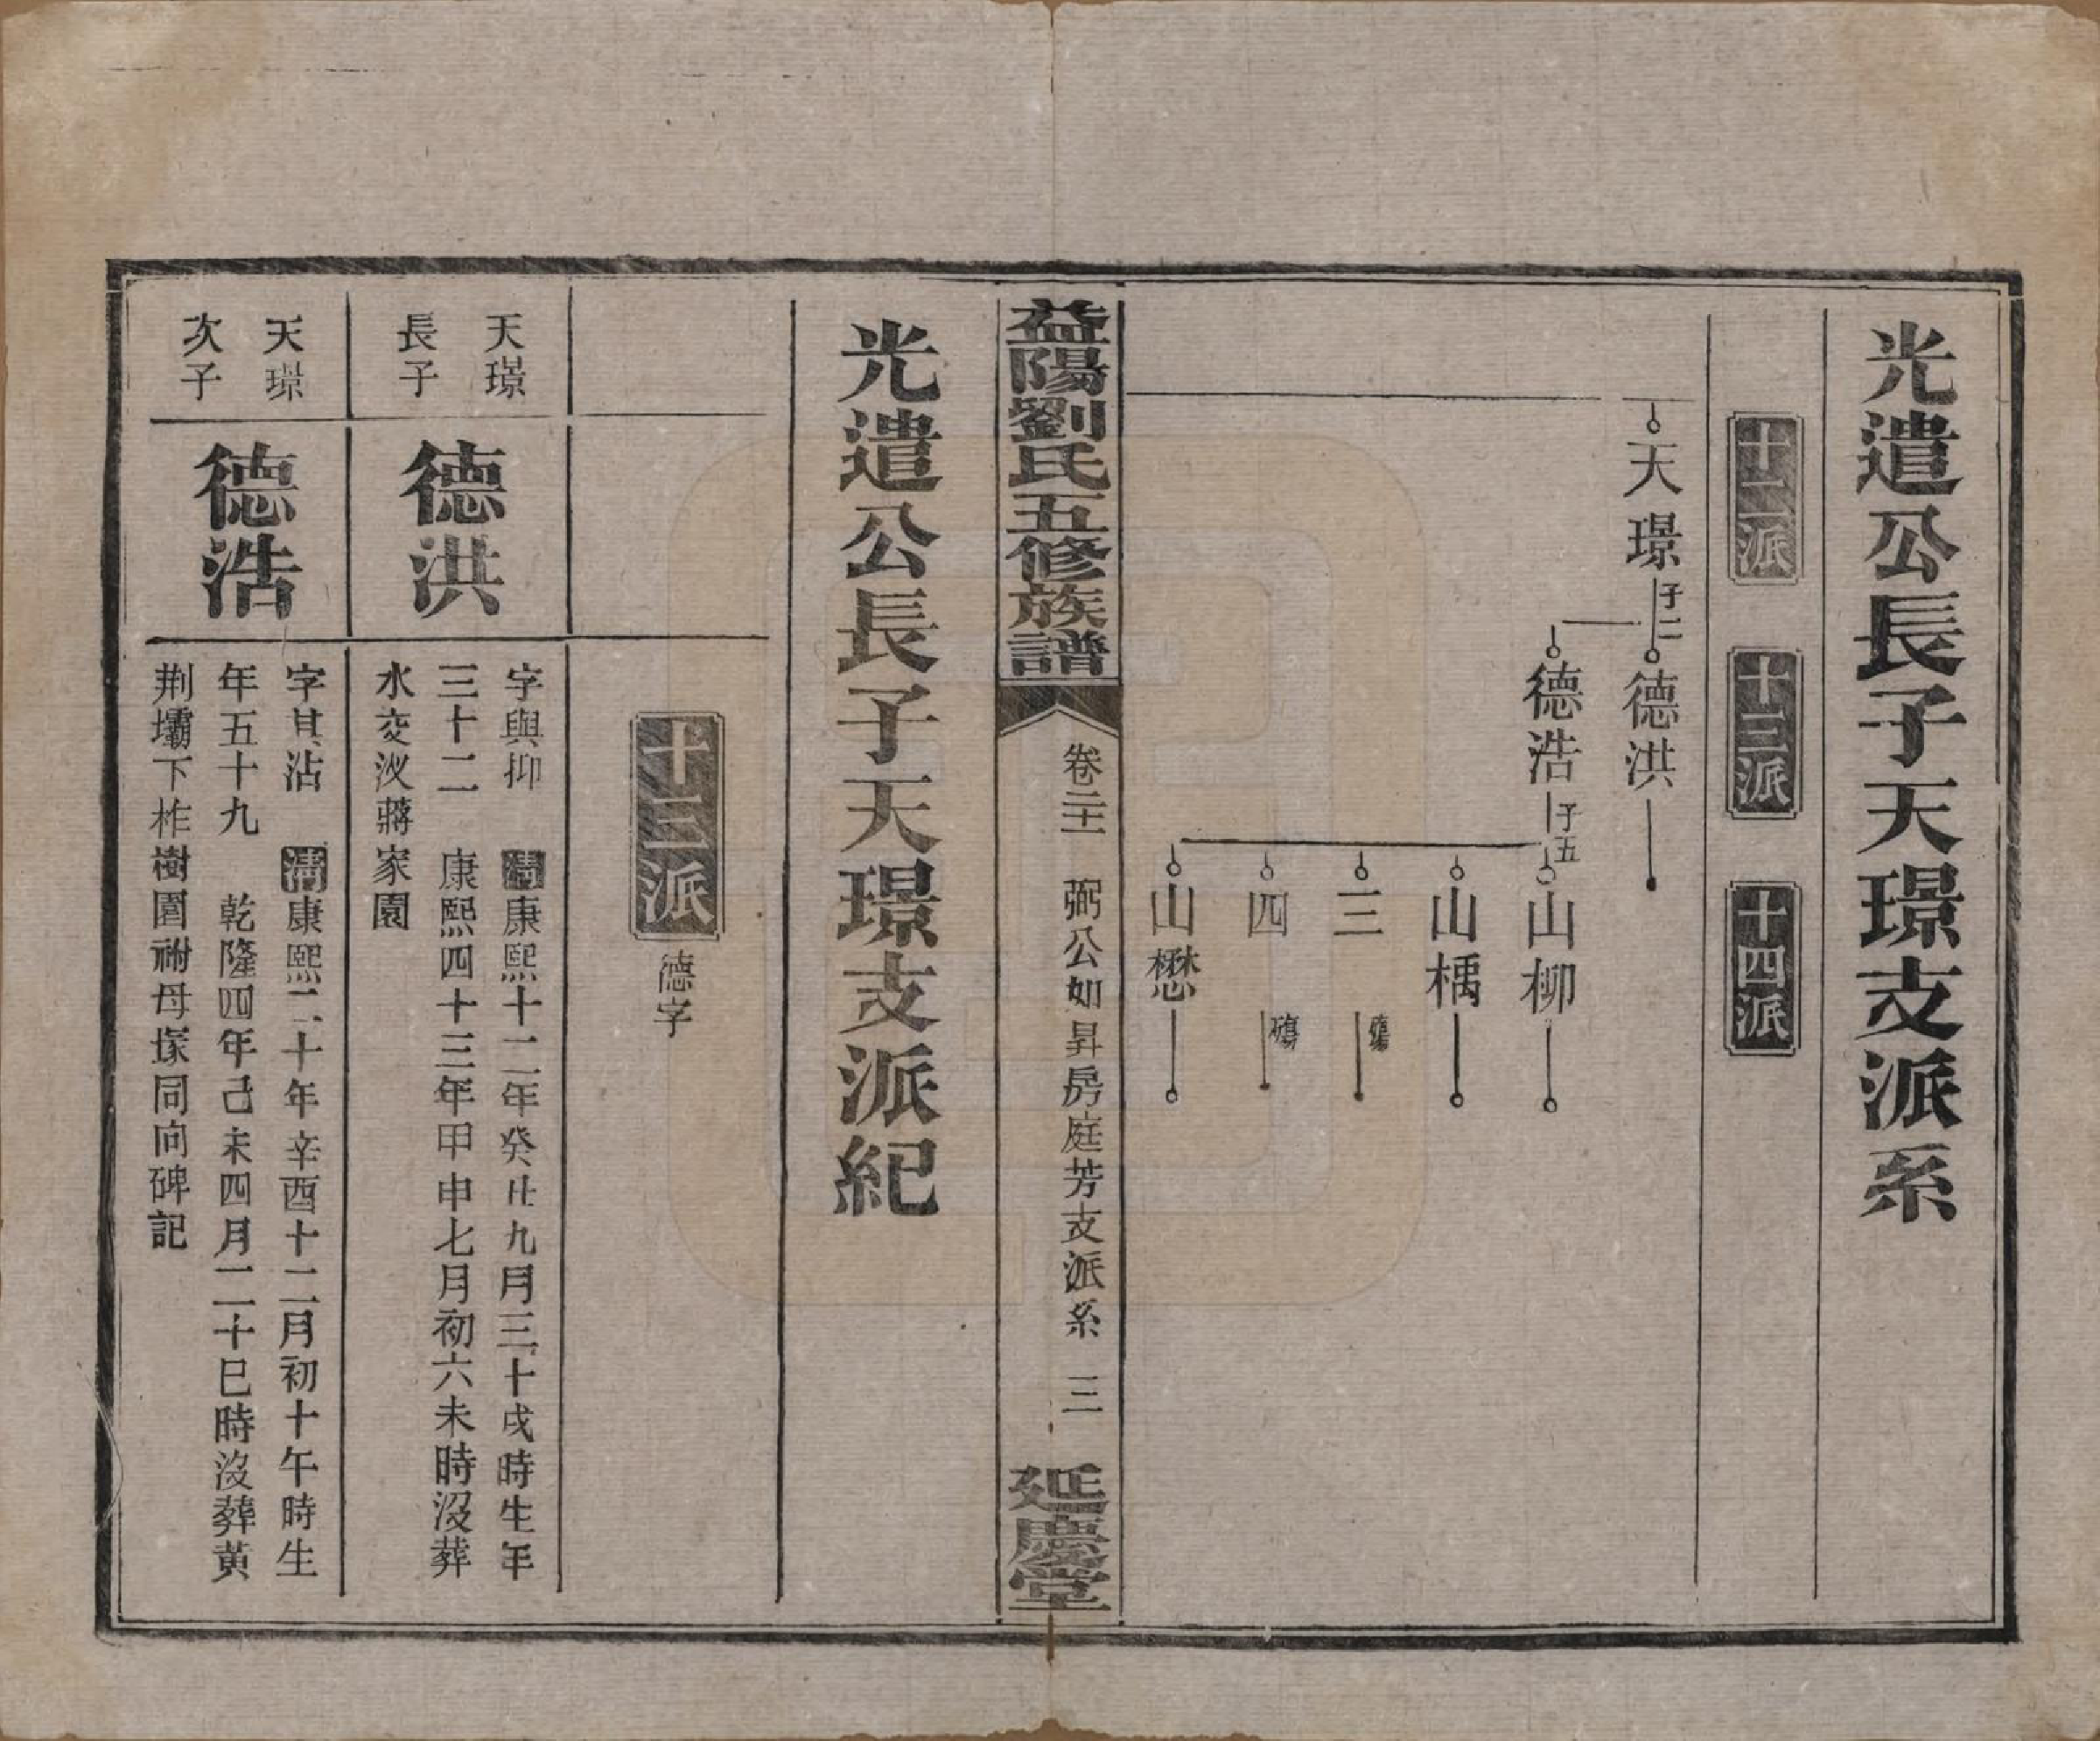 光遣公長子天璟支派系
十二派
十三派
十四派
天璟 子二
德洪
德浩 子五
山柳
山楀
三 殤
四 殤
山懋
益陽劉氏五修族譜
卷二十一 弼公如昇房庭芳支派系 三
延慶堂
光遣公長子天璟支派紀
十三派 德字
天璟
長子
德洪
字與抑 清康熙十二年癸丑九月三十戌時生年
三十二 康熙四十三年甲申七月初六未時沒葬
水交汊蔣家園
天璟
次子
德浩
字其沾 清康熙二十年辛酉十二月初十午時生
年五十九 乾隆四年己未四月二十巳時沒葬黃
荆壩下柞樹園祔母塚同向碑記